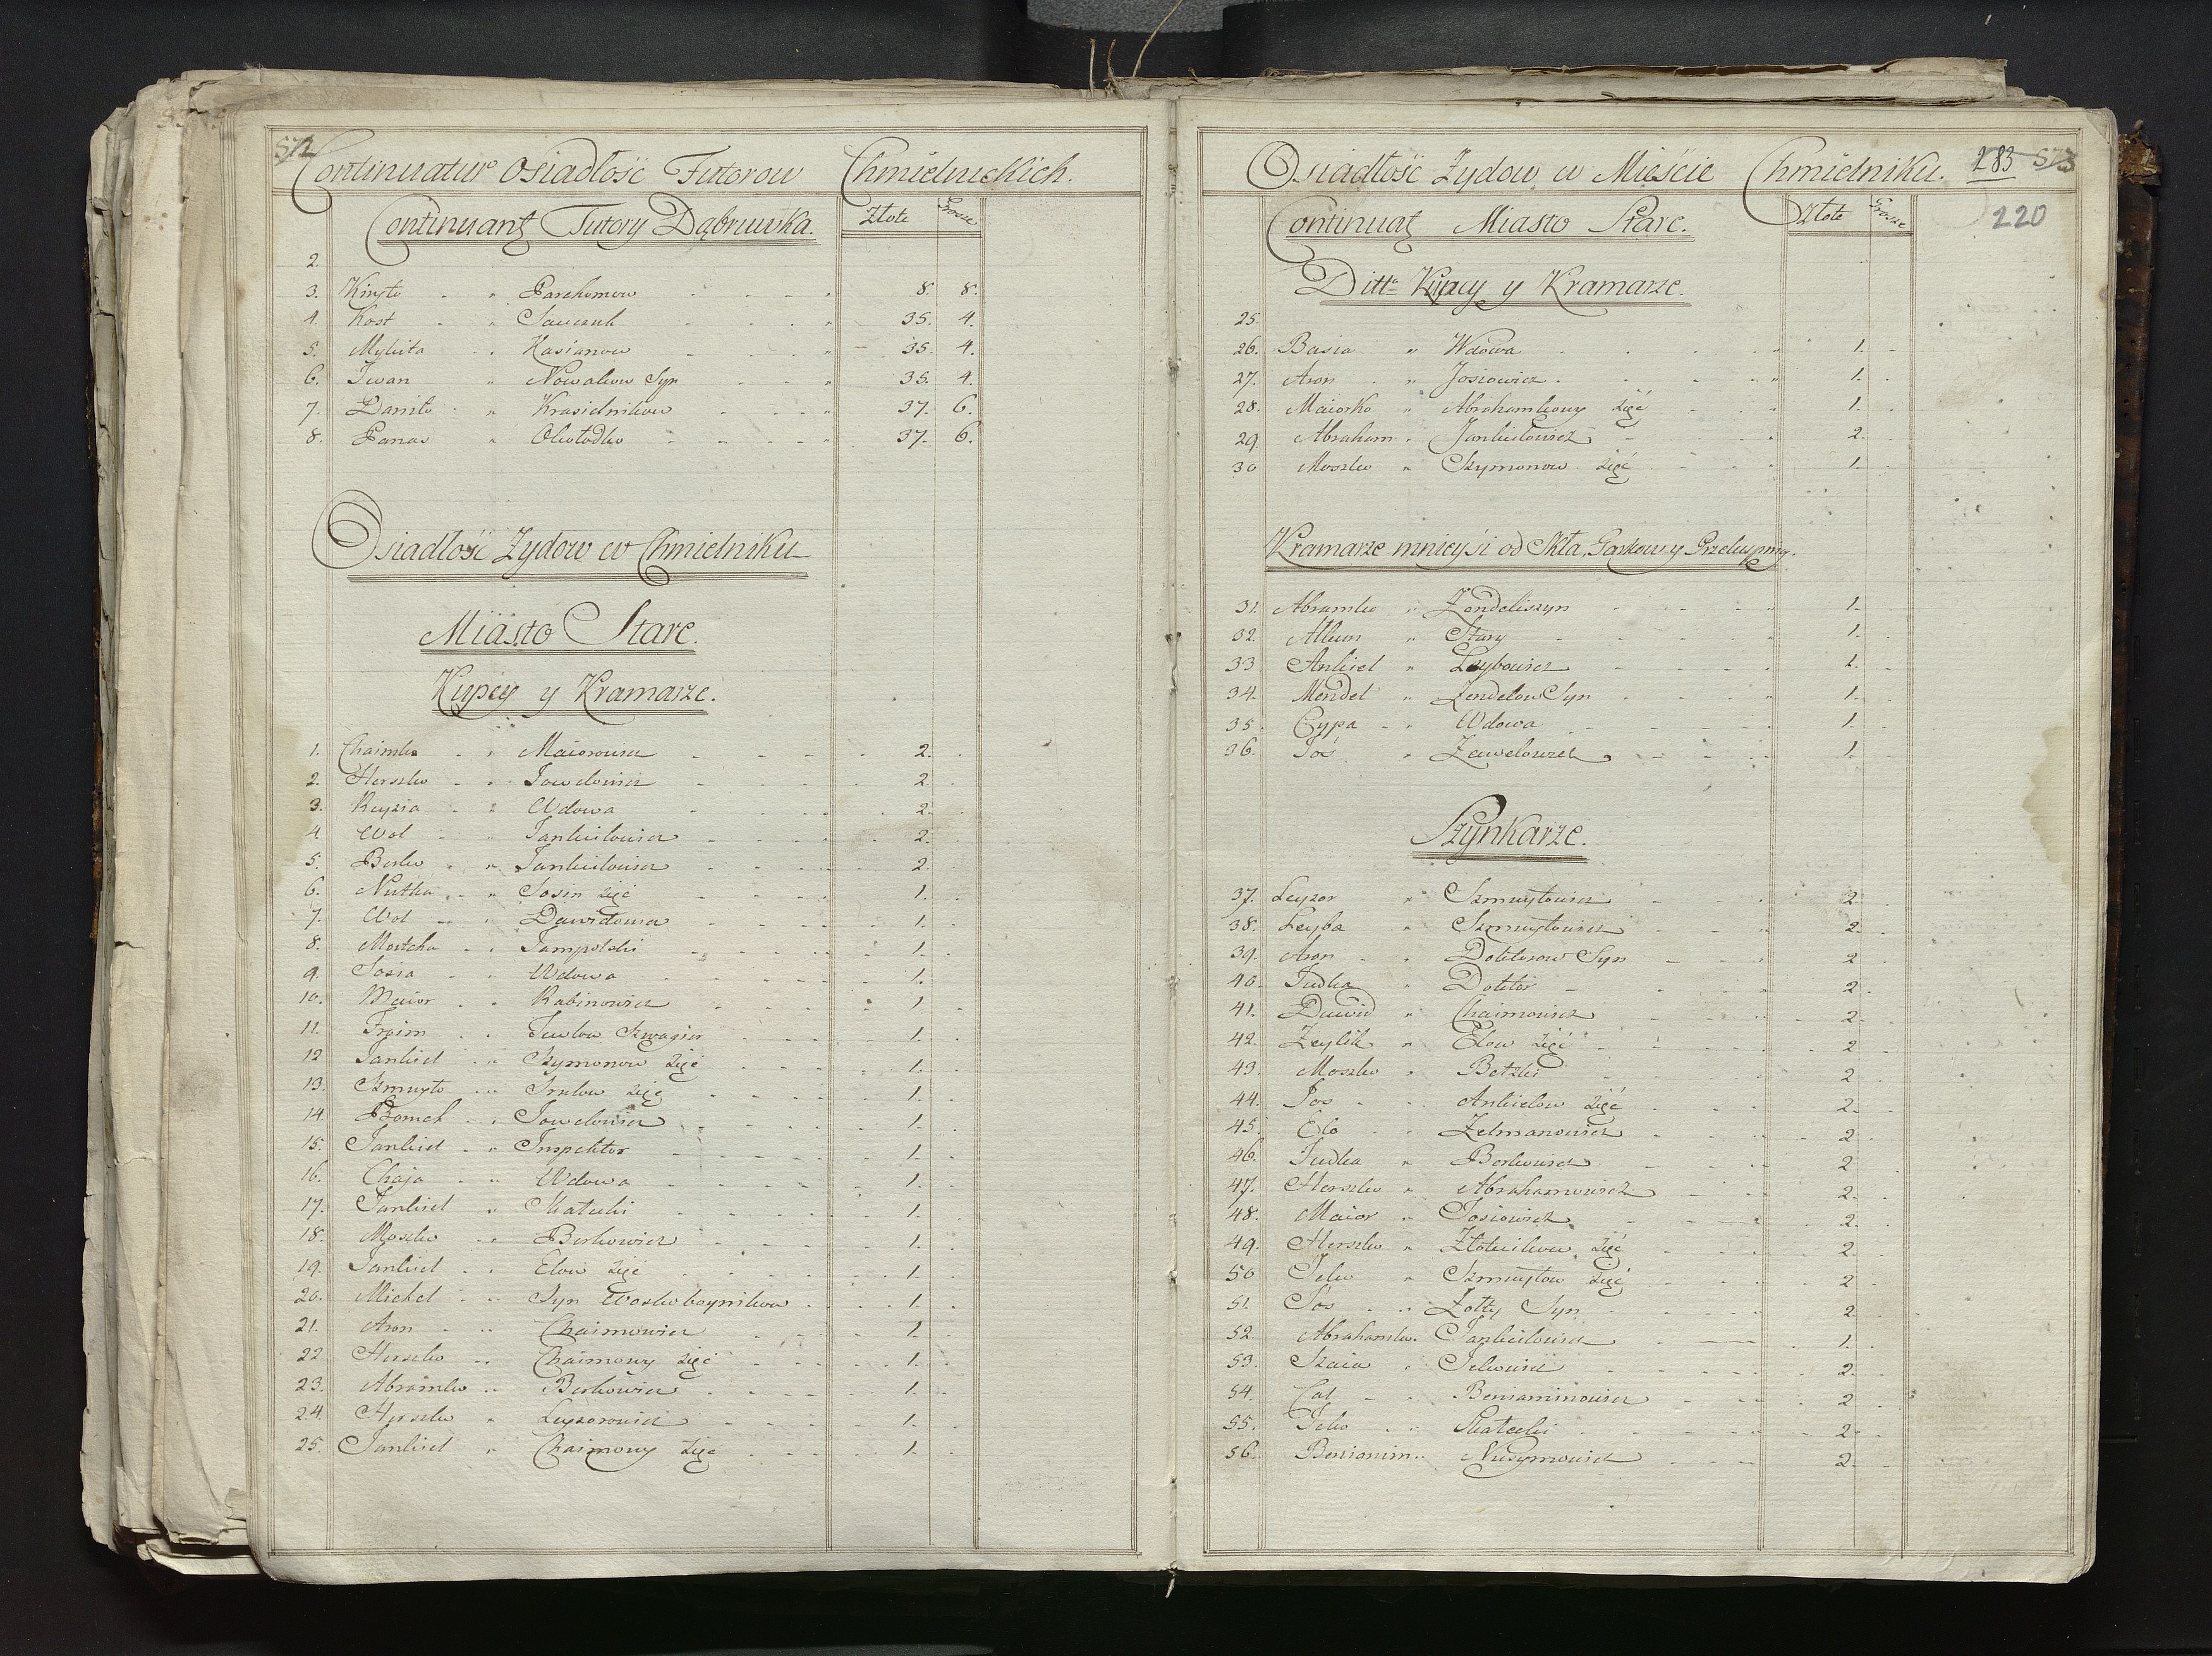 572
Continuatur Osiadłość Futorow Chmielnickich.
Continuant Futory Dąbruwka. Złote Grosze
2.
3. Kiryło " Parchomow 8. 8.
4. Kost " Sawczuk 35. 4.
5. Mykita " Kasianow 35. 4.
6. Iwan " Nowakow Syn 35. 4.
7. Daniło " Krasielnikow 37. 6.
8. Panas " Okołodko 37. 6.
Osiadłość Zydow w Chmielniku
Miasto Stare.
Kupcy y Kramarze.
1. Chaimko " Maiorowicz 2.
2. Herszko " Iowelowicz 2.
3. Reyzia " Wdowa 2.
4 Wol " Iankielowicz 2.
5. Berko " Iankielowicz 2.
6. Nutka " Iosin zięć 1.
7. Wol " Dawidowicz 1.
8. Mortcha " Iampolski 1.
9. Iosia " Wdowa 1.
10. Maior " Rabinowicz 1.
11. Froim " Szwagier 1.
12 Iankiel " Szymonow zięć 1.
13. Szmuyło " Srulow zięć 1.
14. Iowelowicz 1.
15. Iankiel " Inspektor 1.
16. Chaja " Wdowa 1.
17. Iankiel " Skalecki 1.
18. Moszko " Berkowicz 1.
19. Iankiel " Elow zięć 1.
20. Michel " Syn Woskoboynikow 1.
21. Aron " Chaimowicz 1.
22 Herszko " Chaimowy zięć 1.
23. Abramko " Berkowicz 1.
24. Herszko " Leyzorowicz 1.
25. Iankiel " Chaimowy zięć 1.
Osiadłość Zydow w Mieście Chmielniku. 283 573
Continuat Miasto Stare. Złote Grosze 220
Ditto Kupcy y Kramarze.
25.
26. Basia " Wdowa 1.
27. Aron " Josiowicz 1.
28. Maiorko " Abrahamkowy zięć 1.
29. Abraham " Jankielowicz 2.
30 Moszko " Szymonow zięć 1.
Kramarze mnieysi od Skła, Garkow y Przekupniy.
31. Abramko " Zendeliszyn 1.
32. Stary 1.
33 Ankiel " Leybowicz 1.
34. Mendel " Zendelow Syn 1.
35. Cypa " Wdowa 1.
36. Ioś " Zawelowicz 1.
Szynkarze.
37. Leyzor " Szmuyłowicz 2.
38. Leyba " Szmuyłowicz 2.
39. Aron " Doktorow Syn 2
40. Iudka " Doktor 2.
41. Dawid " Chaimowicz 2.
42. Zeylik " Elow zięć 2
43. Moszko " Betzki 2
44. Ios " Ankielow zięć 2.
45. Elo " Zelmanowicz 2
46. Iudka " Berkowicz 2
47. Herszko " Abrahamowicz 2.
48. Maior " Iosiowicz 2.
49. Herszko " Złotnikow zięć 2.
50 Icko " Szmuyłow zięć 2
51. Ios " Zołty Syn 2.
52. Abrahamko " Iankielowicz 1.
53. Szaia " Ickowicz 2.
54. Cal " Beniaminowicz 2
55. Icko " Skalecki 2.
56. Beniamin " Nusymowicz 2.